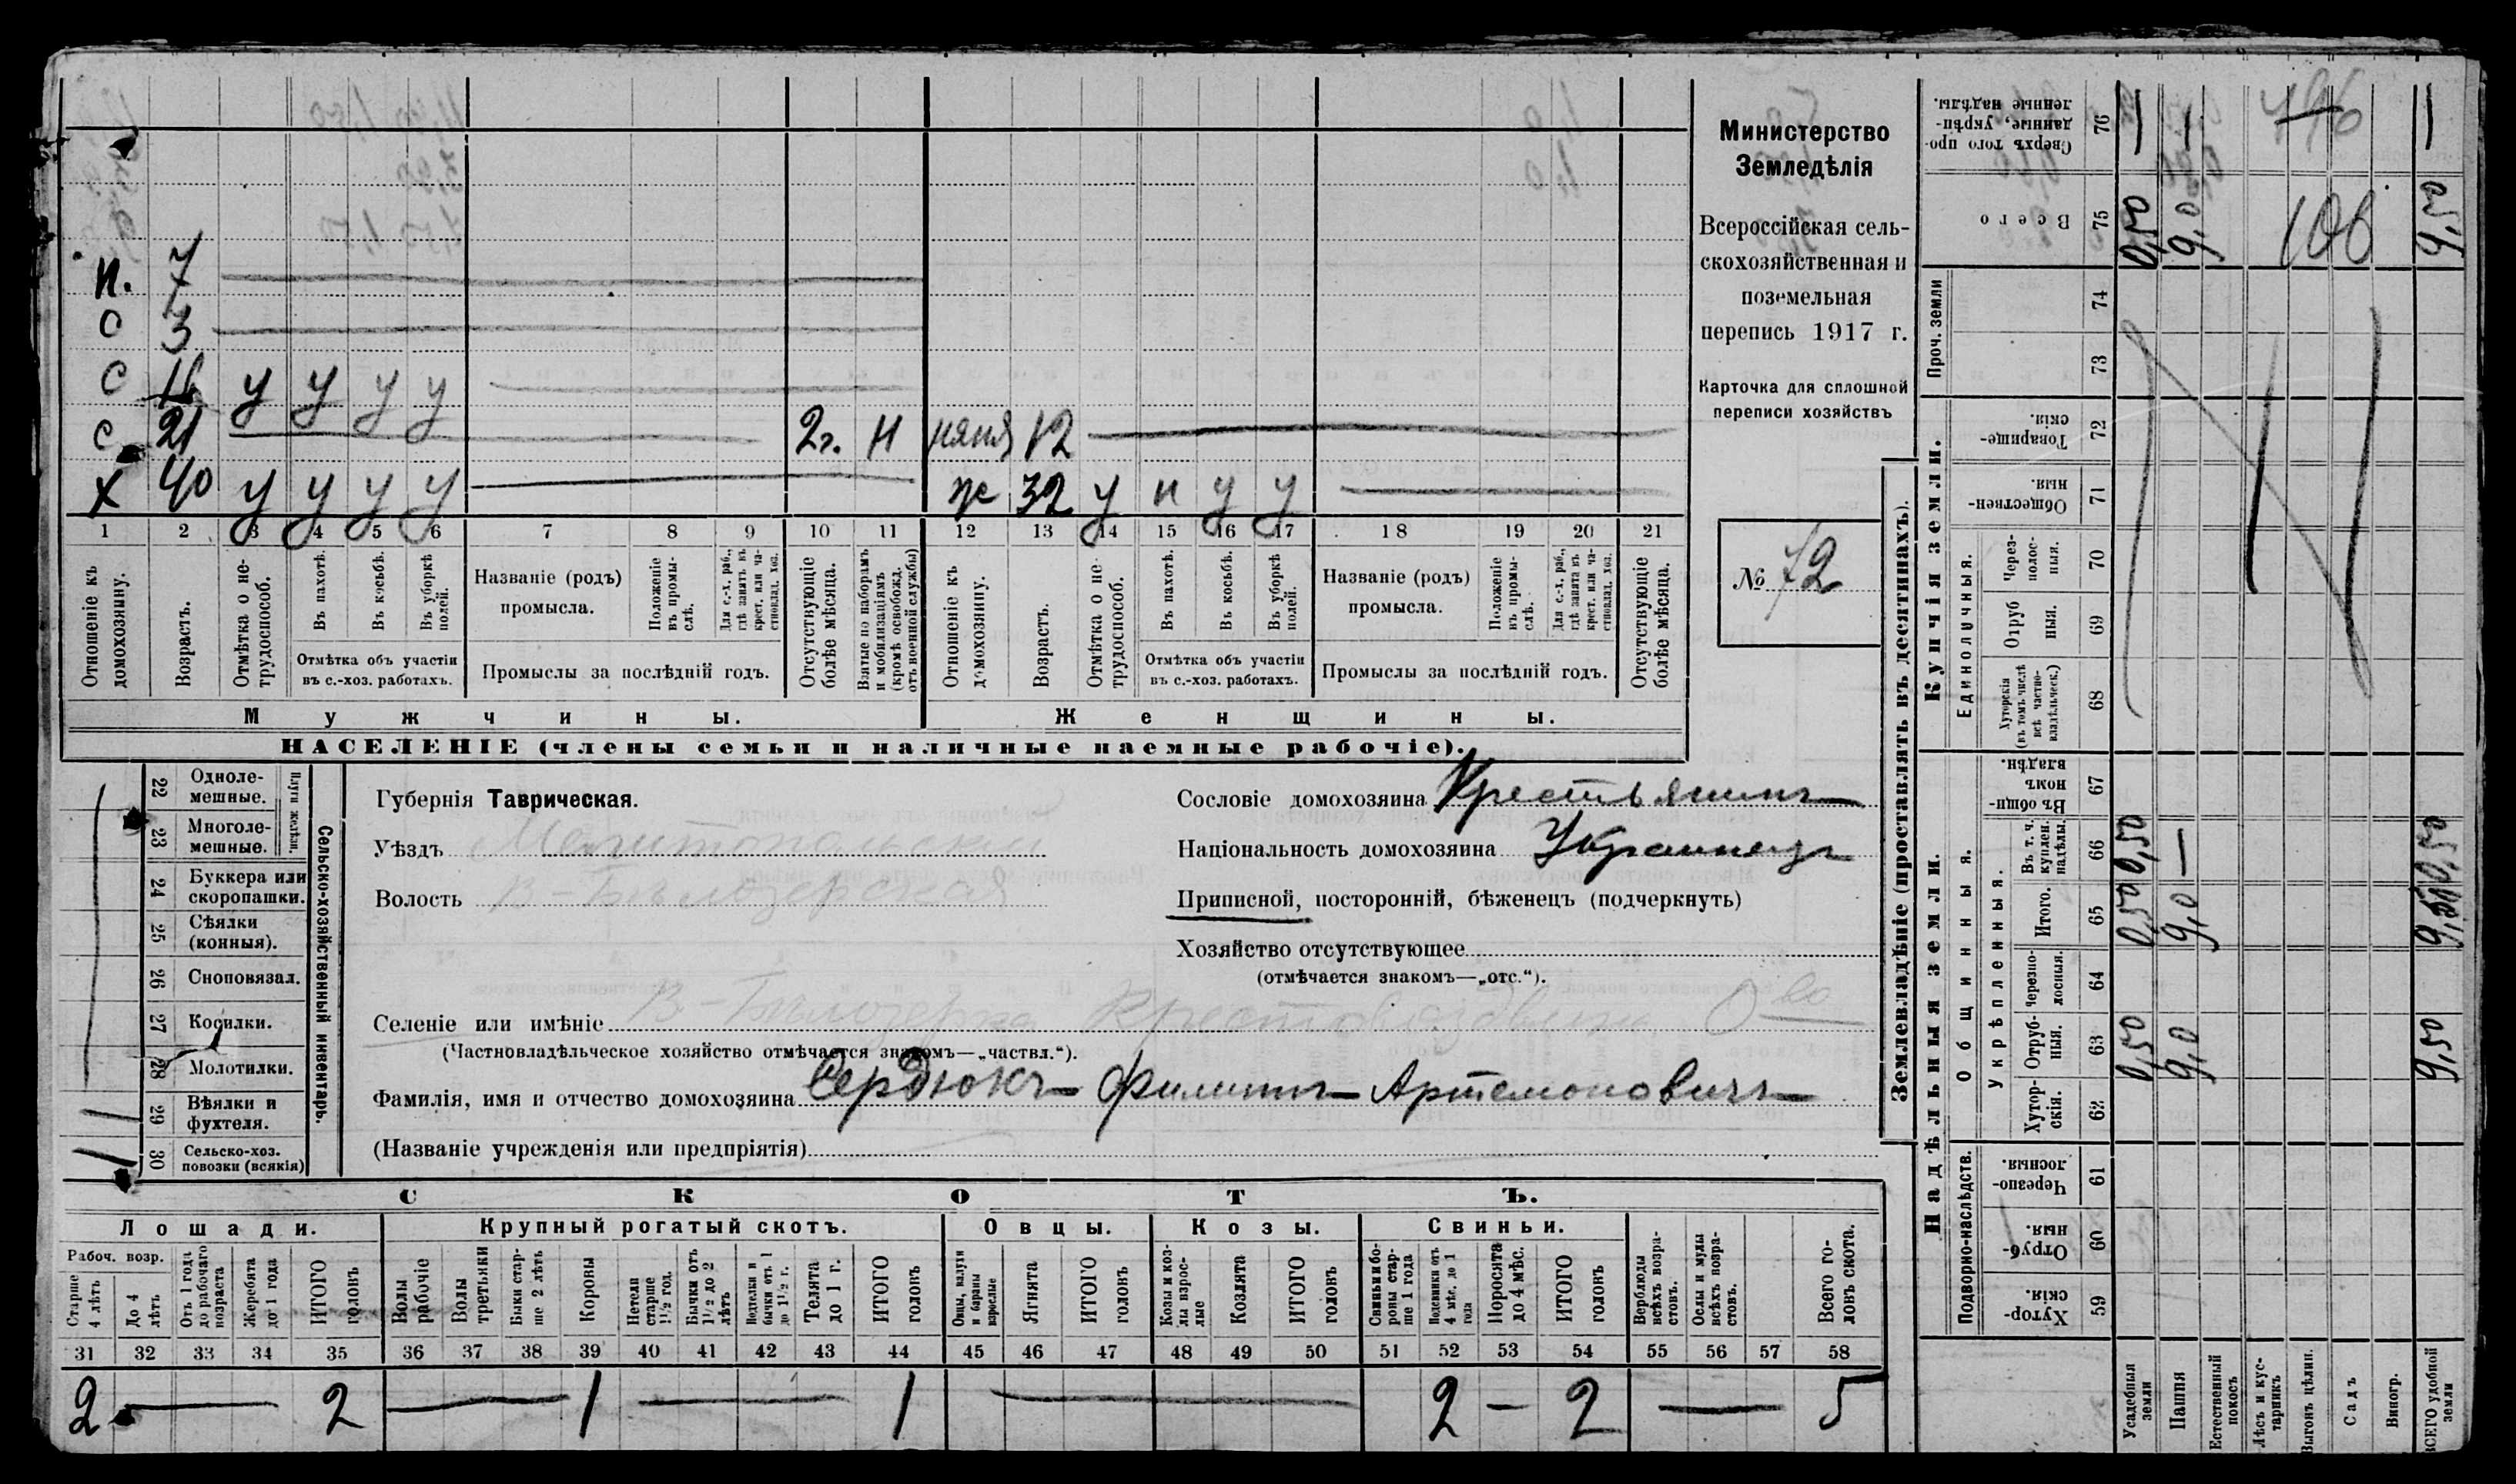 п. 7
с 3
с 16 у у у у
с 21 2г. н няня 12
х 40 у у у у ж 32 у н у у
1 2 3 4 5 6 7 8 9 10 11 12 13 14 15 16 17 18 19 20 21
Отношеніе къ домохозяину.
Возрастъ.
Отмѣтка о не-
трудоспособ.
Въ пахотѣ.
Въ косьбѣ.
Въ уборкѣ полей.
Отмѣтка объ участіи
въ с.-хоз. работахъ.
Названіе (родъ)
промысла.
Положеніе въ промы-
слѣ.
Для с.-х. раб., гдѣ занятъ въ крест. или ча-
стновлад. хоз.
Промыслы за послѣдній годъ.
Отсутствующіе болѣе мѣсяца.
Взятые по наборамъ и мобилизаціямъ (кромѣ освобожд. отъ военной службы)
Отношеніе къ домохозяину.
Возрастъ.
Отмѣтка о не-
трудоспособ.
Въ пахотѣ.
Въ косьбѣ.
Въ уборкѣ полей.
Отмѣтка объ участіи
въ с.-хоз. работахъ.
Названіе (родъ)
промысла.
Положеніе въ промы-
слѣ.
Для с.-х. раб., гдѣ занята въ крест. или ча-
стновлад. хоз.
Промыслы за послѣдній годъ.
Отсутствующіе болѣе мѣсяца.
Мужчины.
Женщины.
НАСЕЛЕНІЕ (члены семьи и наличные наемные рабочіе).
Министерство
Земледѣлія
Всероссійская сель-
скохозяйственная и
поземельная
перепись 1917 г.
Карточка для сплошной
переписи хозяйствъ
№ 72
22 Одноле-
мешные.
23 Многоле-
мешные.
Плуги желѣзн.
24 Буккера или
скоропашки.
25 Сѣялки
(конныя).
26 Сноповязал.
27 Косилки.
28 Молотилки.
29 Вѣялки и
фухтеля.
30 Сельско-хоз.
повозки (всякія)
Сельско-хозяйственный инвентарь.
Губернія Таврическая.
Уѣздъ Мелитопольскій
Волость В-Бѣлозерская
Сословіе домохозяина Крестьянинъ
Національность домохозяина Украинецъ
Приписной, посторонній, бѣженецъ (подчеркнуть)
Хозяйство отсутствующее
(отмѣчается знакомъ—„отс.“).
Селеніе или имѣніе В-Бѣлозерка Крестовоздвижен. О-во
(Частновладѣльческое хозяйство отмѣчается знакомъ—„частвл.“).
Фамилія, имя и отчество домохозяина Сердюкъ Филиппъ Артемоновичъ
(Названіе учрежденія или предпріятія)
СКОТЪ.
Лошади.
Крупный рогатый скотъ.
Овцы.
Козы.
Свиньи.
Рабоч. возр.
Старше 4 лѣтъ
До 4 лѣтъ
Отъ 1 года до рабочаго возраста
Жеребята до 1 года
ИТОГО головъ
Волы рабочіе
Волы третьяки
Быки стар-
ше 2 лѣтъ
Коровы
Нетели старше 1½ год.
Бычки отъ 1½ до 2 лѣтъ
Подтелки и бычки отъ 1 до 1½ г.
Телята до 1 г.
ИТОГО головъ
Овцы, валухи и бараны взрослые
Ягнята
ИТОГО головъ
Козы и коз-
лы взрос-
лые
Козлята
ИТОГО головъ
Свиньи и бо-
ровы стар-
ше 1 года
Подсвинки отъ 4 мѣс. до 1 года
Поросята до 4 мѣс.
ИТОГО головъ
Верблюды всѣхъ возра-
стовъ.
Ослы и мулы всѣхъ возра-
стовъ.
Всего го-
ловъ скота.
31 32 33 34 35 36 37 38 39 40 41 42 43 44 45 46 47 48 49 50 51 52 53 54 55 56 57 58
2 — 2 — 1 — 1 — 2 — 2 — 5
Землевладѣніе (проставлять въ десятинахъ).
Купчія земли.
Надѣльныя земли.
Сверхъ того про-
данные, укрѣп-
ленные надѣлы. 76 — — 796 —
Всего 75 0,50 9,0 106 9,50
Проч. земли
74
73
Товарище-
скія. 72
Обществен-
ныя. 71
Единоличныя.
Через-
полос-
ныя. 70
Отруб
ныя. 69
Хуторскія (въ томъ числѣ всѣ частно-
владѣльческ.) 68
Общинныя.
Въ общи-
номъ владѣн. 67
Укрѣпленныя.
Въ т. ч. куплен. надѣлы. 66 0,50 — 0,50
Итого. 65 0,50 9,0 9,50
Черезпо-
лосныя. 64
Отруб-
ныя. 63 0,50 9,0 9,50
Хутор-
скія. 62
Подворно-наслѣдств.
Черезпо-
лосныя. 61
Отруб-
ныя. 60
Хутор-
скія. 59
Усадебныя земли
Пашня
Естественный покосъ
Лѣсъ и кус-
тарникъ
Выгонъ цѣлин.
Садъ
Виногр.
ВСЕГО удобной земли